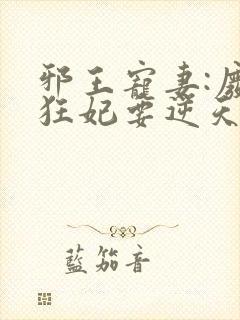 邪王寵妻:廢
狂妃要逆天
藍笳音